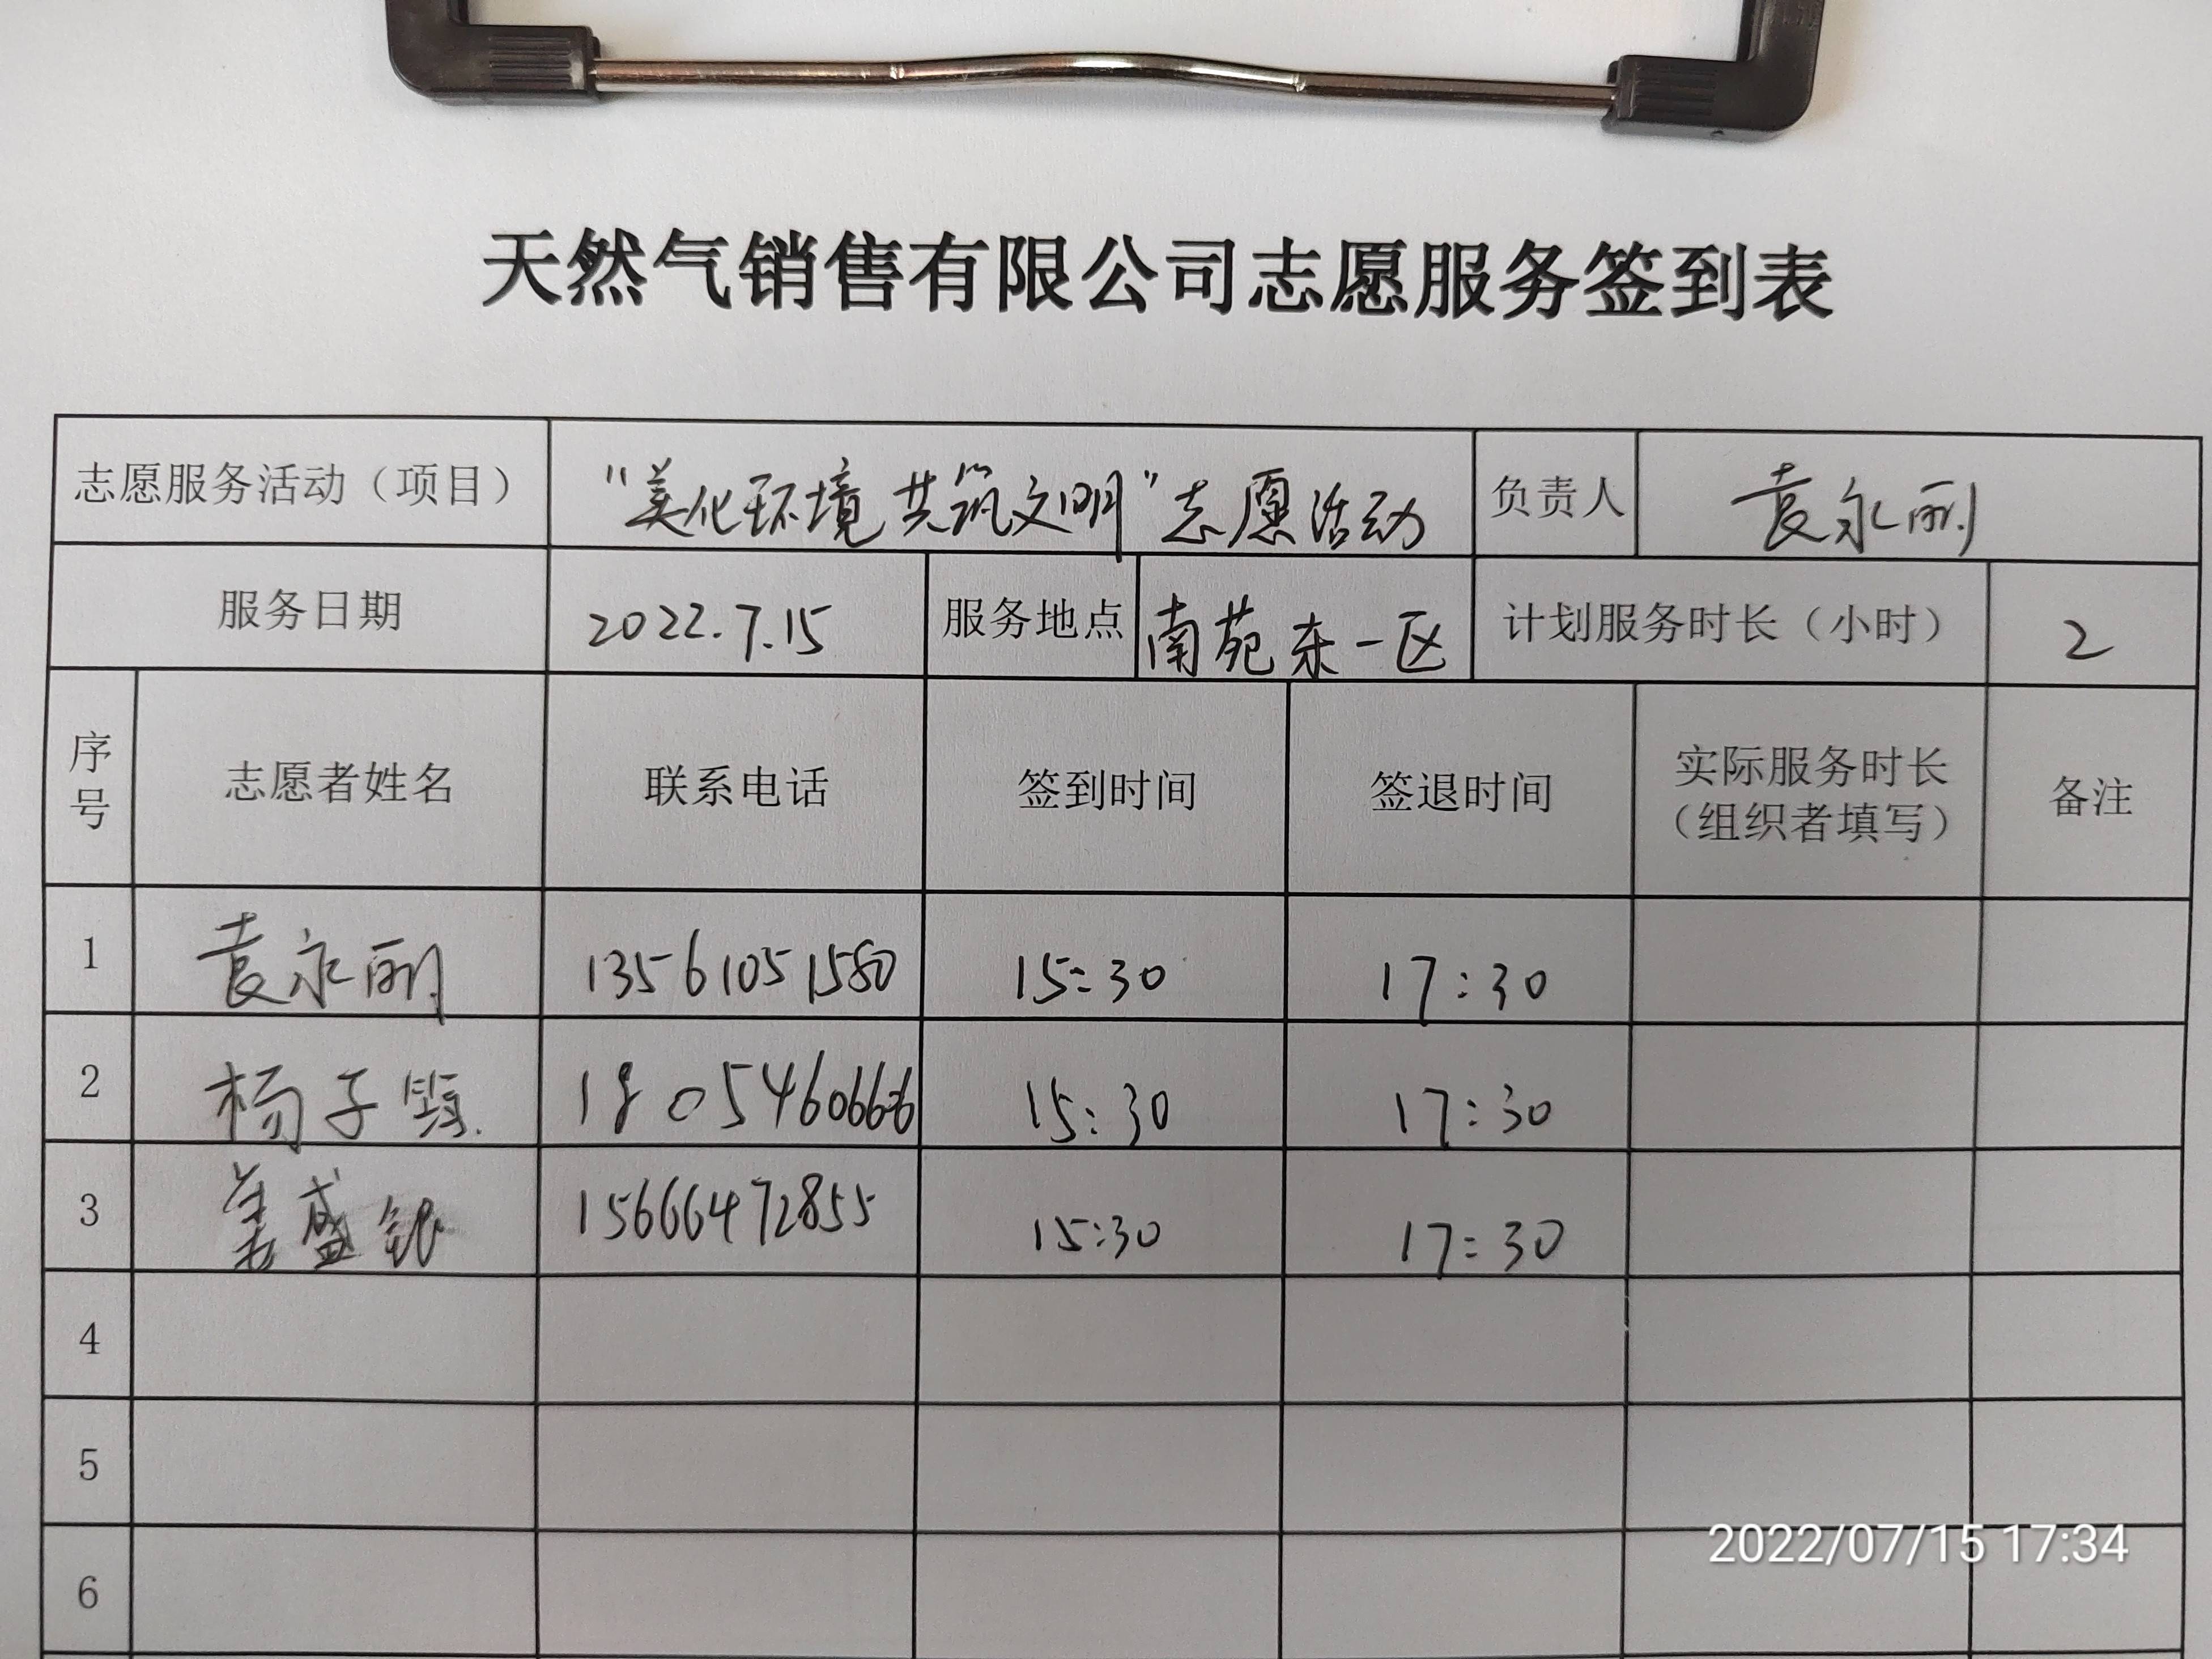 天然气销售有限公司志愿服务签到表
志愿服务活动（项目） "美化环境 共筑文明"志愿活动 负责人 袁永丽
服务日期 2022.7.15 服务地点 南苑东一区 计划服务时长（小时） 2
序号 志愿者姓名 联系电话 签到时间 签退时间 实际服务时长（组织者填写） 备注
1 袁永丽 13561051580 15:30 17:30
2 杨子 18054606666 15:30 17:30
3 姜盛 15666472855 15:30 17:30
4
5
6
2022/07/15 17:34